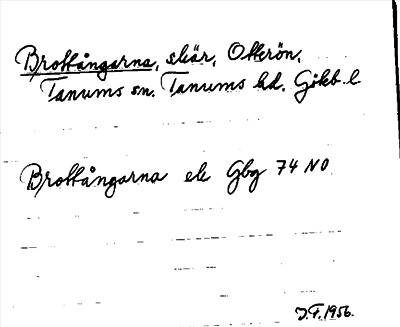 Brottångarna, skär, Otterön,
Tanums sn. Tanums hd. Göteb. l.
Brottångarna ek Gbg 74 NO
J.F. 1956.